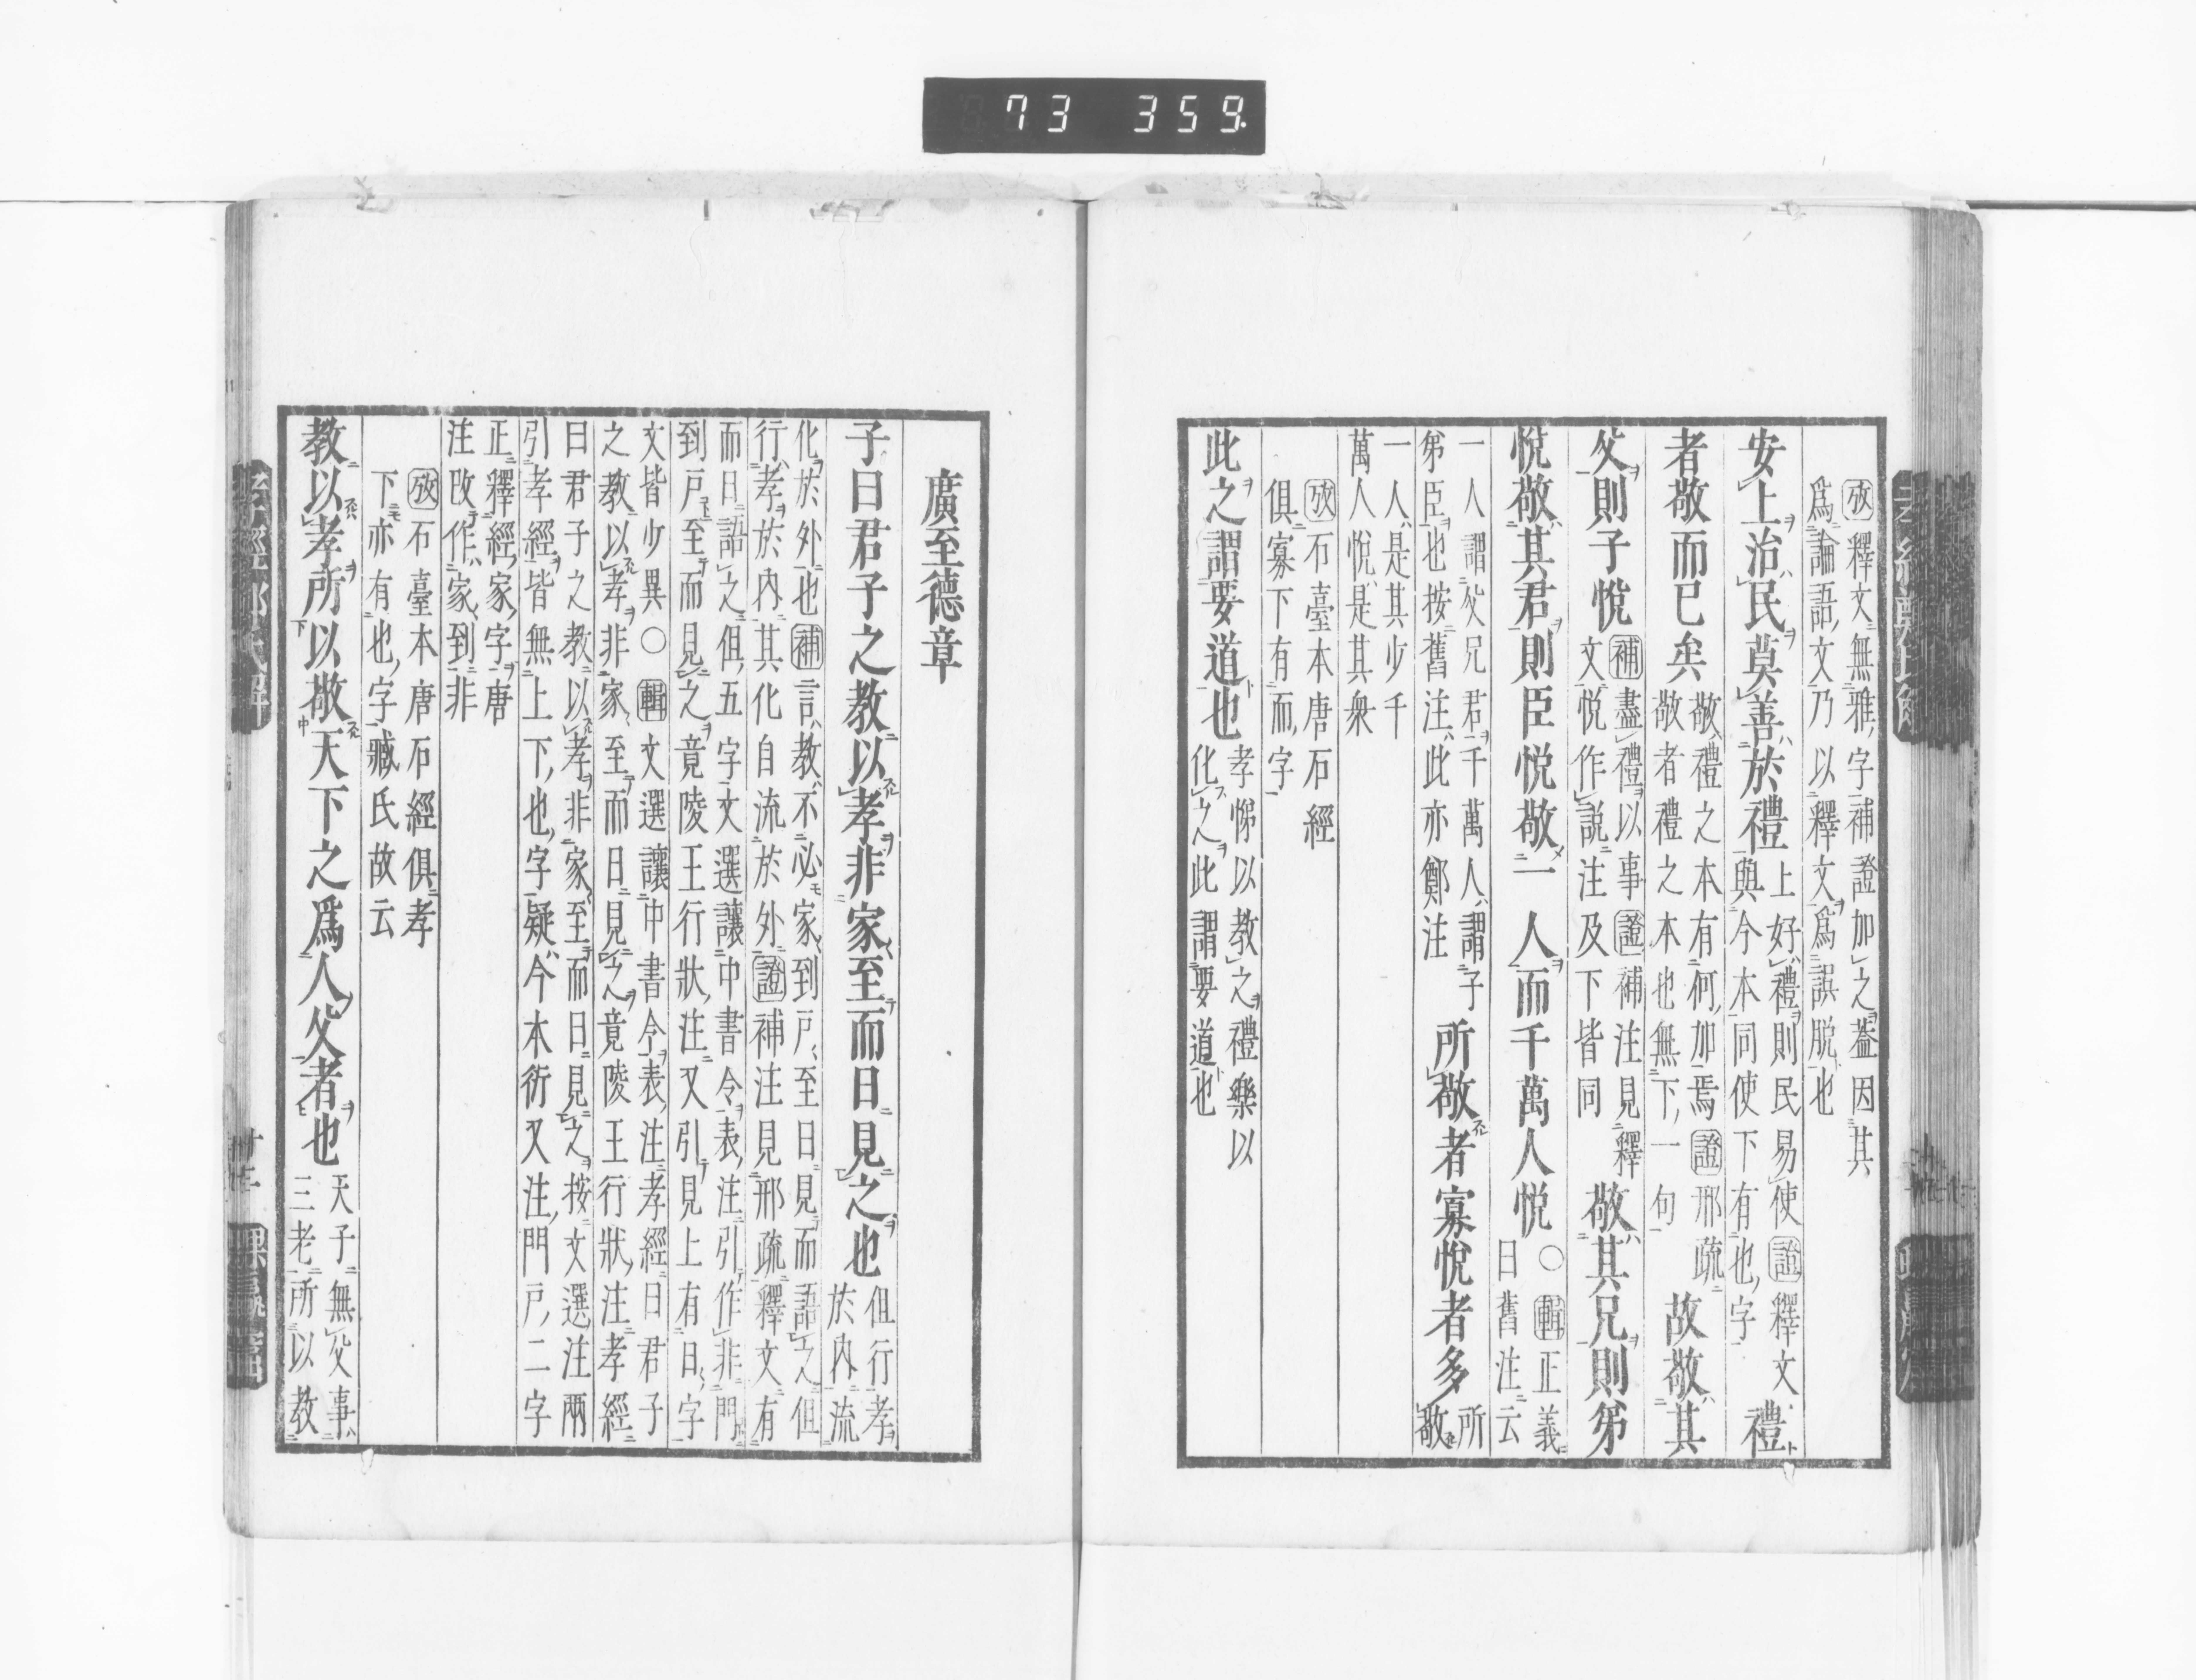 73 359
攷釋文無雅字補證加之葢因其
爲論語文乃以釋文爲誤脱也
安上治民莫善於禮
上好禮則民易使證釋文
與今本同使下有也字
禮
者敬而已矣
敬禮之本有何加焉證邢疏
敬者禮之本也無下一句
故敬其
父則子悅
補盡禮以事證補注見釋
文悅作説注及下皆同
敬其兄則弟
悅敬其君則臣悅敬一人而千萬人悅
○輯正義
曰舊注云
一人謂父兄君千萬人謂子
弟臣也按舊注此亦鄭注
所敬者寡悅者多
所
敬
一人是其少千
萬人悅是其衆
攷石臺本唐石經
俱寡下有而字
此之謂要道也
孝悌以教之禮樂以
化之此謂要道也
廣至德章
子曰君子之教以孝非家至而日見之也
但行孝
於内流
化於外也補言教不必家到戸至日見而語之但
行孝於内其化自流於外證補注見邢疏釋文有
而日語之但五字文選讓中書令表注引作非門
到戸至而見之竟陵王行狀注又引見上有日字
文皆少異○輯文選讓中書令表注孝經曰君子
之教以孝非家至而日見之竟陵王行狀注孝經
曰君子之教以孝非家至而日見之按文選注兩
引孝經皆無上下也字疑今本衍又注門戸二字
正釋經家字唐
注改作家到非
攷石臺本唐石經俱孝
下亦有也字臧氏故云
教以孝所以敬天下之爲人父者也
天子無父事
三老所以教